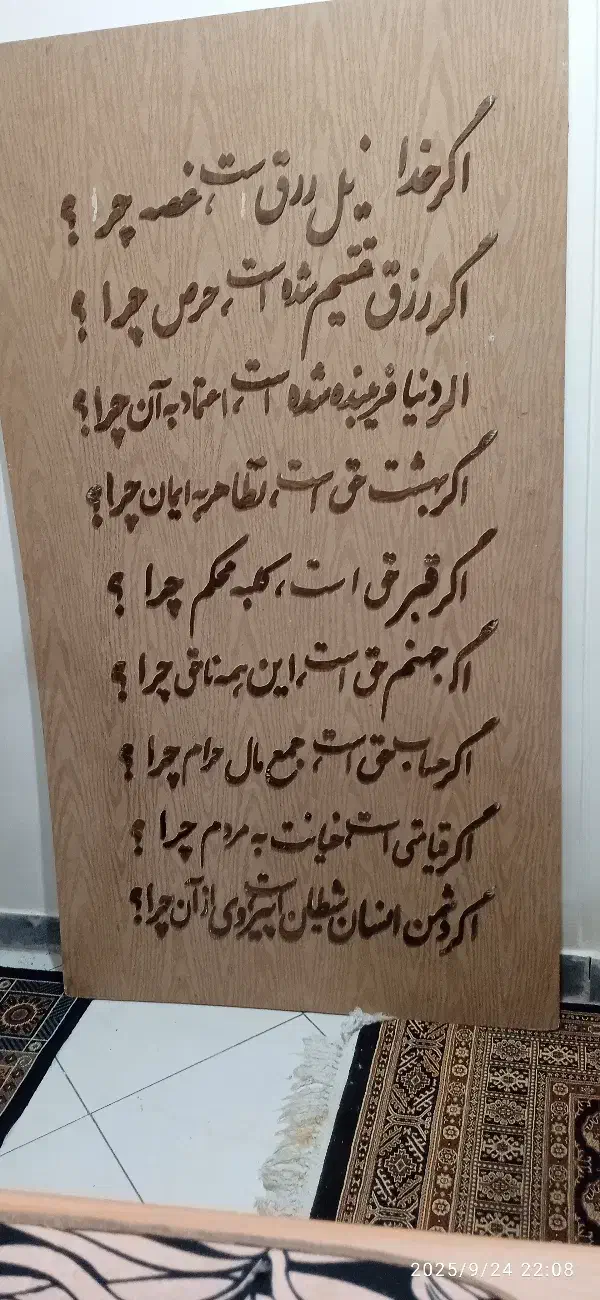 اگر خدا کفیل رزق است، غصه چرا ؟
اگر رزق تقسیم شده است، حرص چرا ؟
اگر دنیا فریبنده شده است، اعتماد به آن چرا؟
اگر بهشت حق است، تظاهر به ایمان چرا؟
اگر قبر حق است، کلبه محکم چرا ؟
اگر جهنم حق است، این همه ناحقی چرا ؟
اگر حساب حق است، جمع مال حرام چرا ؟
اگر قیامتی است، خیانت به مردم چرا ؟
اگر دشمن انسان شیطان است پیروی از آن چرا؟
2025/9/24 22:08